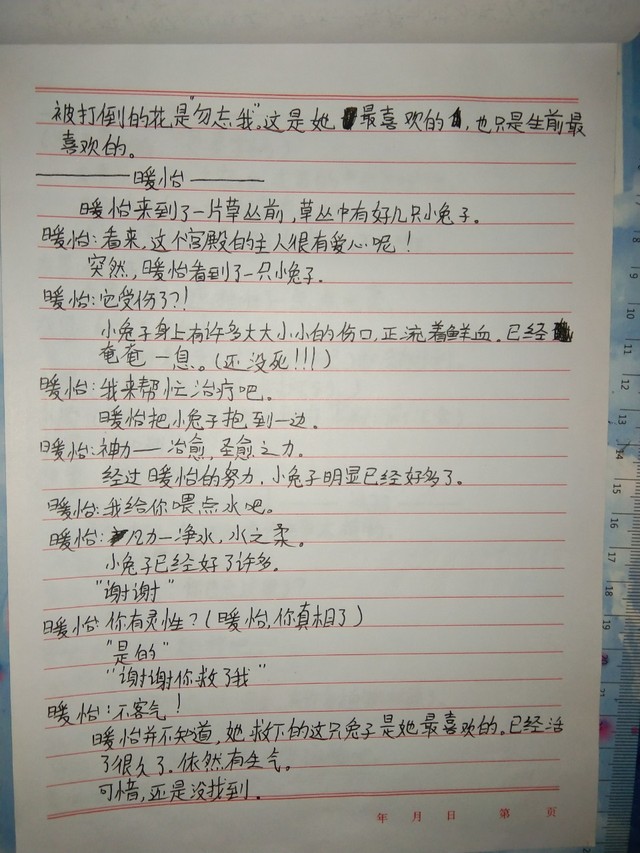 被打倒的花是"勿忘我"。这是她最喜欢的,也只是生前最
喜欢的。
———暖怡———
暖怡来到了一片草丛前,草丛中有好几只小兔子。
暖怡:看来,这个宫殿的主人很有爱心呢!
突然,暖怡看到了一只小兔子.
暖怡:它受伤了?!
小兔子身上有许多大大小小的伤口,正流着鲜血。已经
奄奄一息。(还没死!!!)
暖怡:我来帮忙治疗吧。
暖怡把小兔子抱到一边。
暖怡:神力—治愈,圣愈之力.
经过暖怡的努力,小兔子明显已经好多了。
暖怡:我给你喂点水吧。
暖怡:凡力—净水,水之柔。
小兔子已经好了许多.
"谢谢"
暖怡:你有灵性?(暖怡,你真相了)
"是的"
"谢谢你救了我"
暖怡:不客气!
暖怡并不知道,她救下的这只兔子是她最喜欢的。已经活
了很久了.依然有生气。
可惜,还是没找到.
年 月 日 第 页
9
10
11
12
13
14
15
16
17
18
19